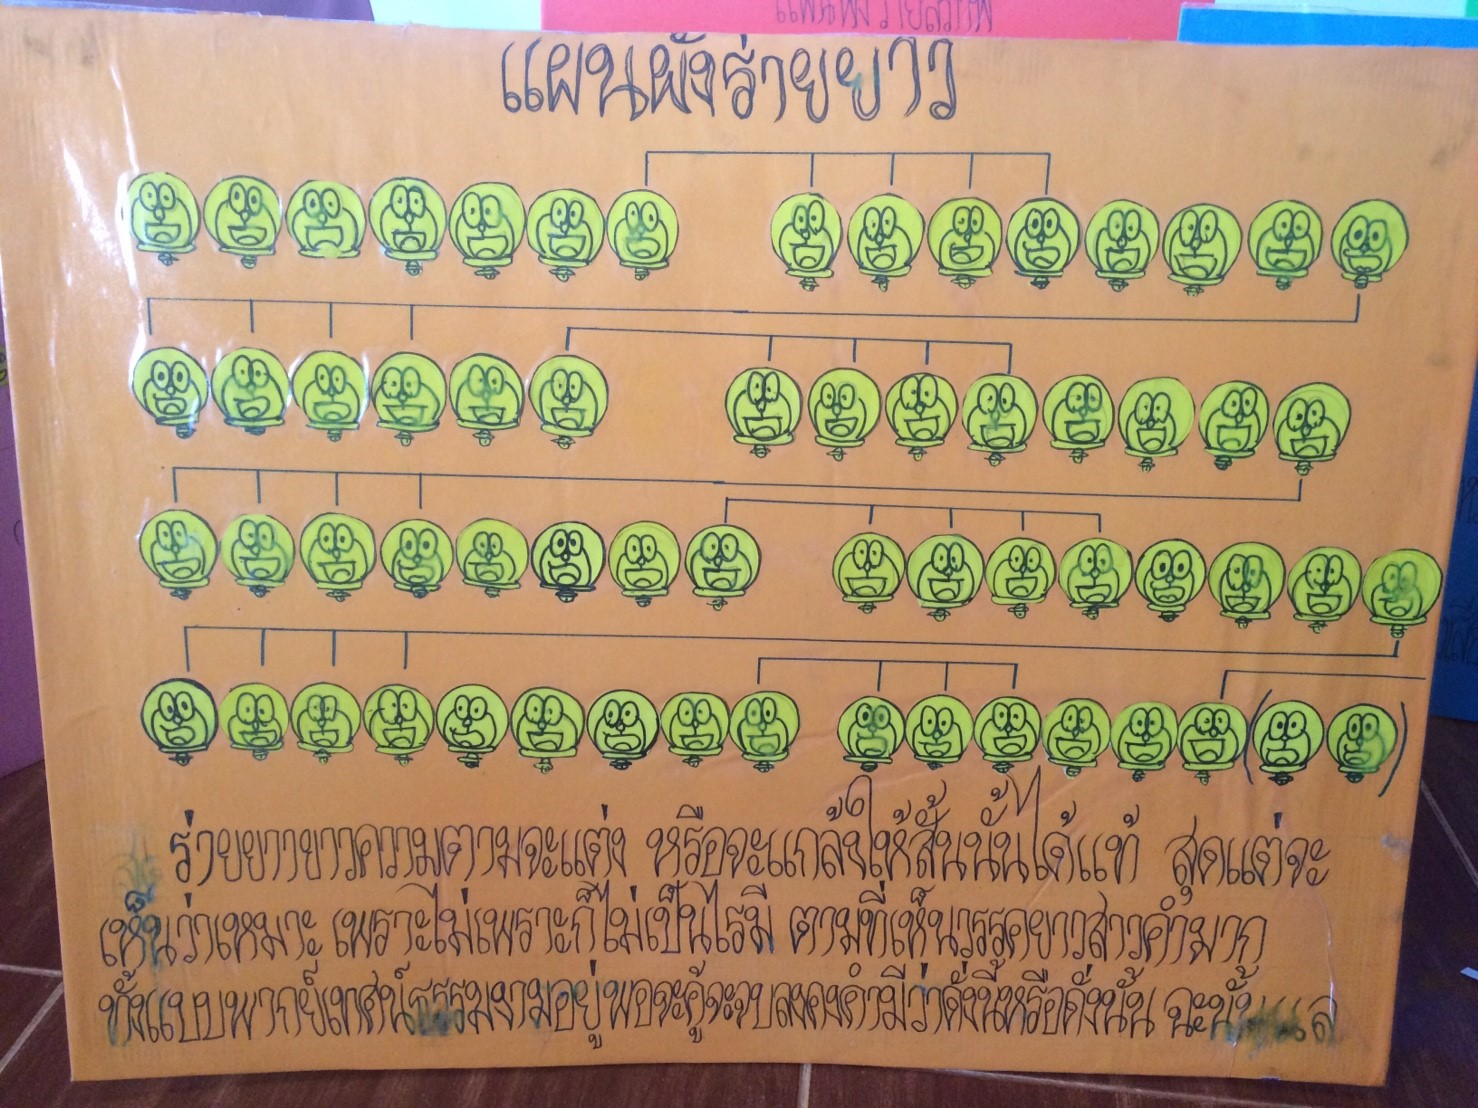 แผนผังร่ายสุภาพ
แผนผังร่ายยาว
ร่ายยาวยาวความตามจะแต่ง หรือจะแกล้งให้สั้นนั้นได้แท้ สุดแต่จะ
เห็นว่าเหมาะ เพราะไม่เพราะก็ไม่เป็นไรมี ตามที่เห็นวรรคยาวสาวคำมาก
ทั้งแบบพากย์เทศน์ธรรมงามอยู่ พอจะคู้จะจบลงคงคำมีว่าดั่งนี้หรือดั่งนั้น ฉะนั้นแล